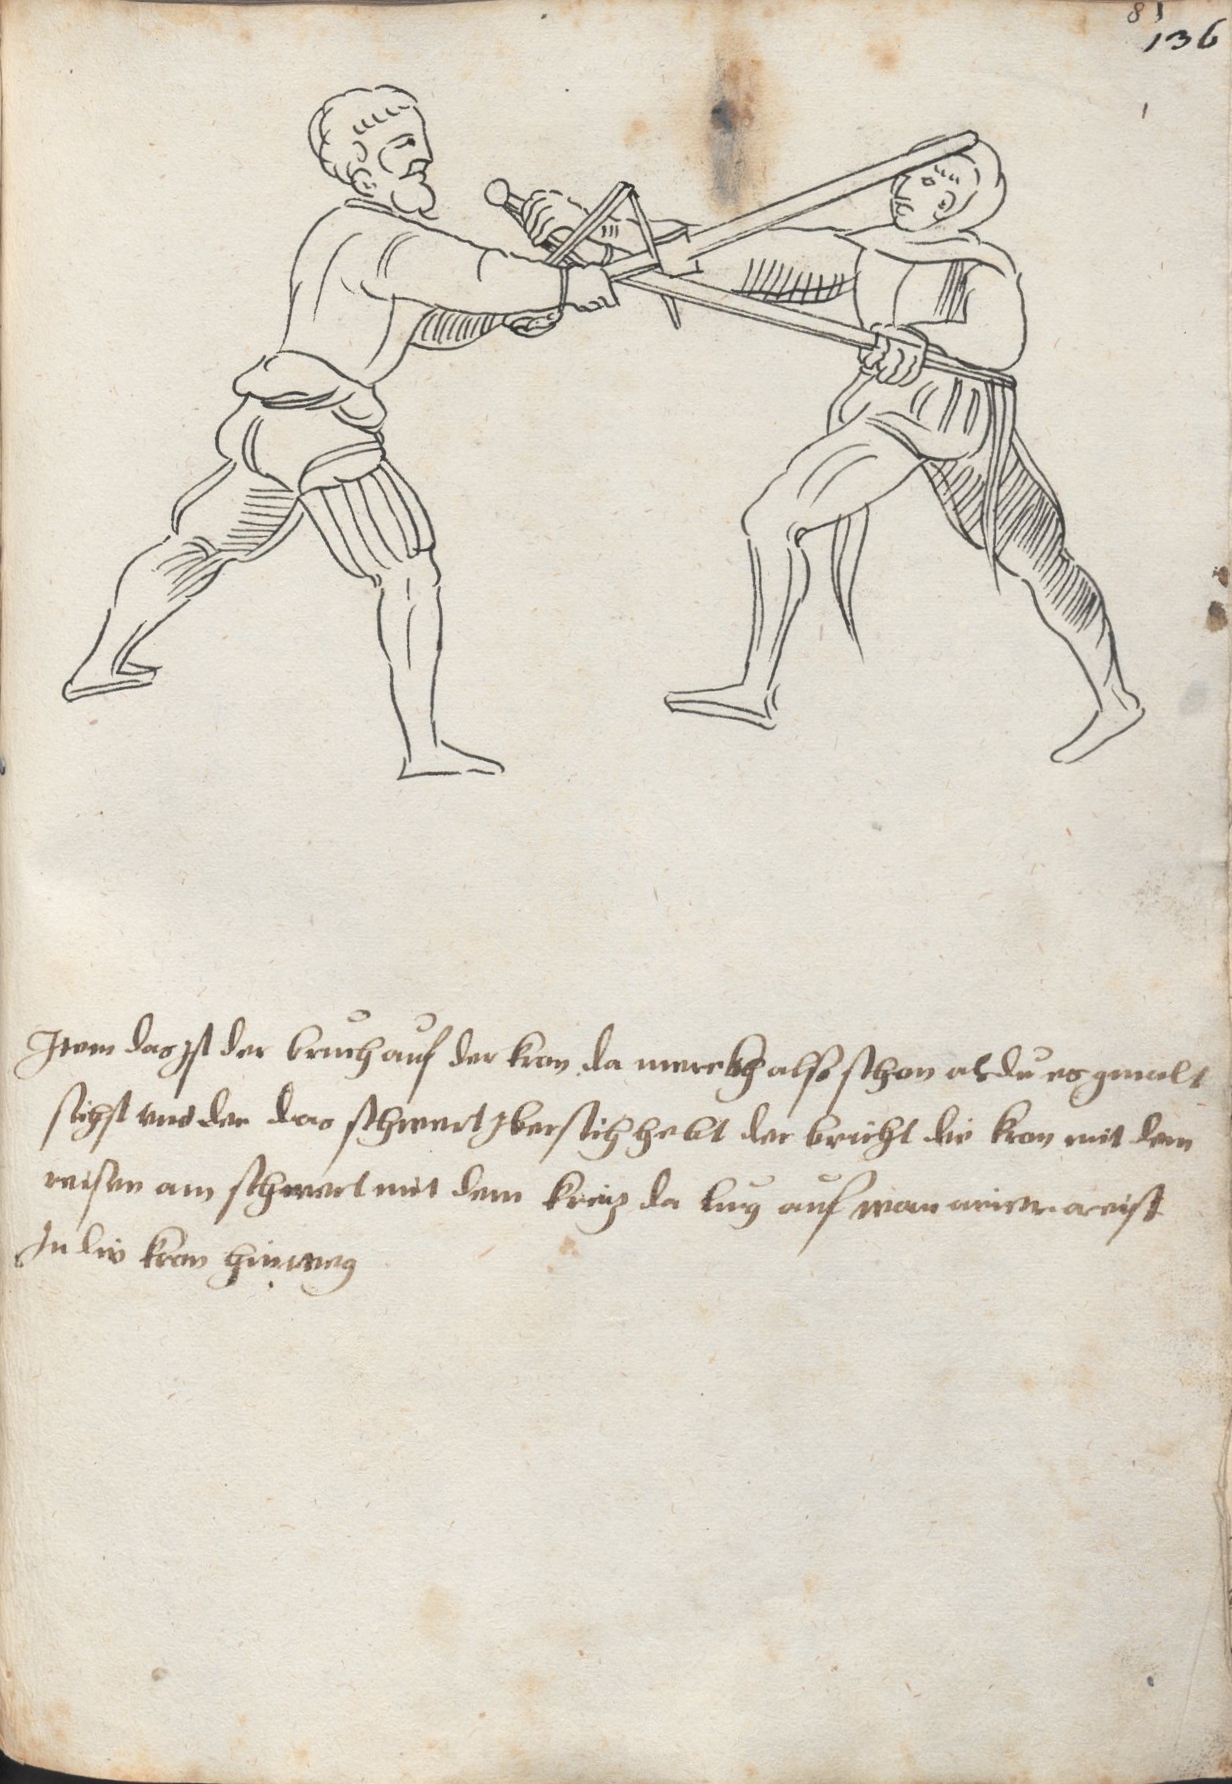 81
136
Item das ist der bruch auf der kron da merckh also schon als du es gmalt
sichst und der das schwert ybersich hebt der bricht die kron mit dem
reisen am schwert mit dem kreitz da lug auf wan
In die kron hinweg